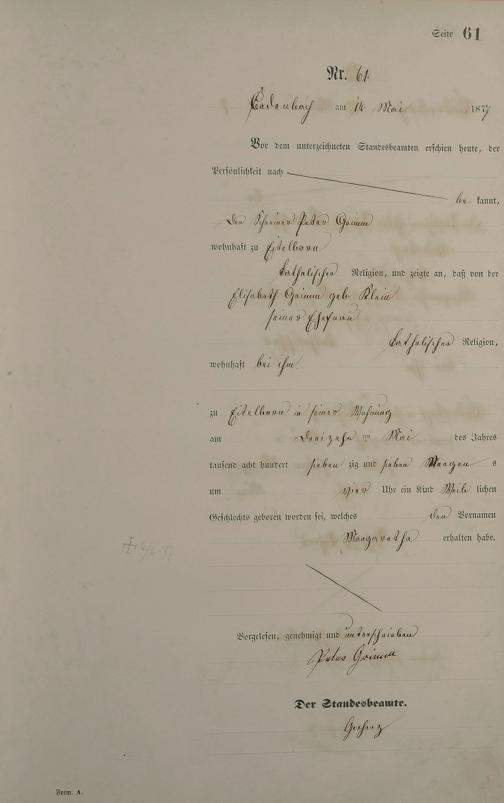 Seite 61
Nr. 61.
Cadenbach am 14 Mai 1877
Vor dem unterzeichneten Standesbeamten erschien heute, der
Persönlichkeit nach
be kannt,
der Schreiner Peter Grimm
wohnhaft zu Eitelborn
katholischer Religion, und zeigte an, daß von der
Elisabeth Grimm geb. Klein
seiner Ehefrau
katholischer Religion,
wohnhaft bei ihm
zu Eitelborn in seiner Wohnung
am dreizehn ten Mai des Jahres
tausend acht hundert sieben zig und sieben Morgen s
um vier Uhr ein Kind Weib lichen
Geschlechts geboren worden sei, welches den Vornamen
Margaretha erhalten habe.
Vorgelesen, genehmigt und unterschrieben
Peter Grimm
Der Standesbeamte.
Form. A.